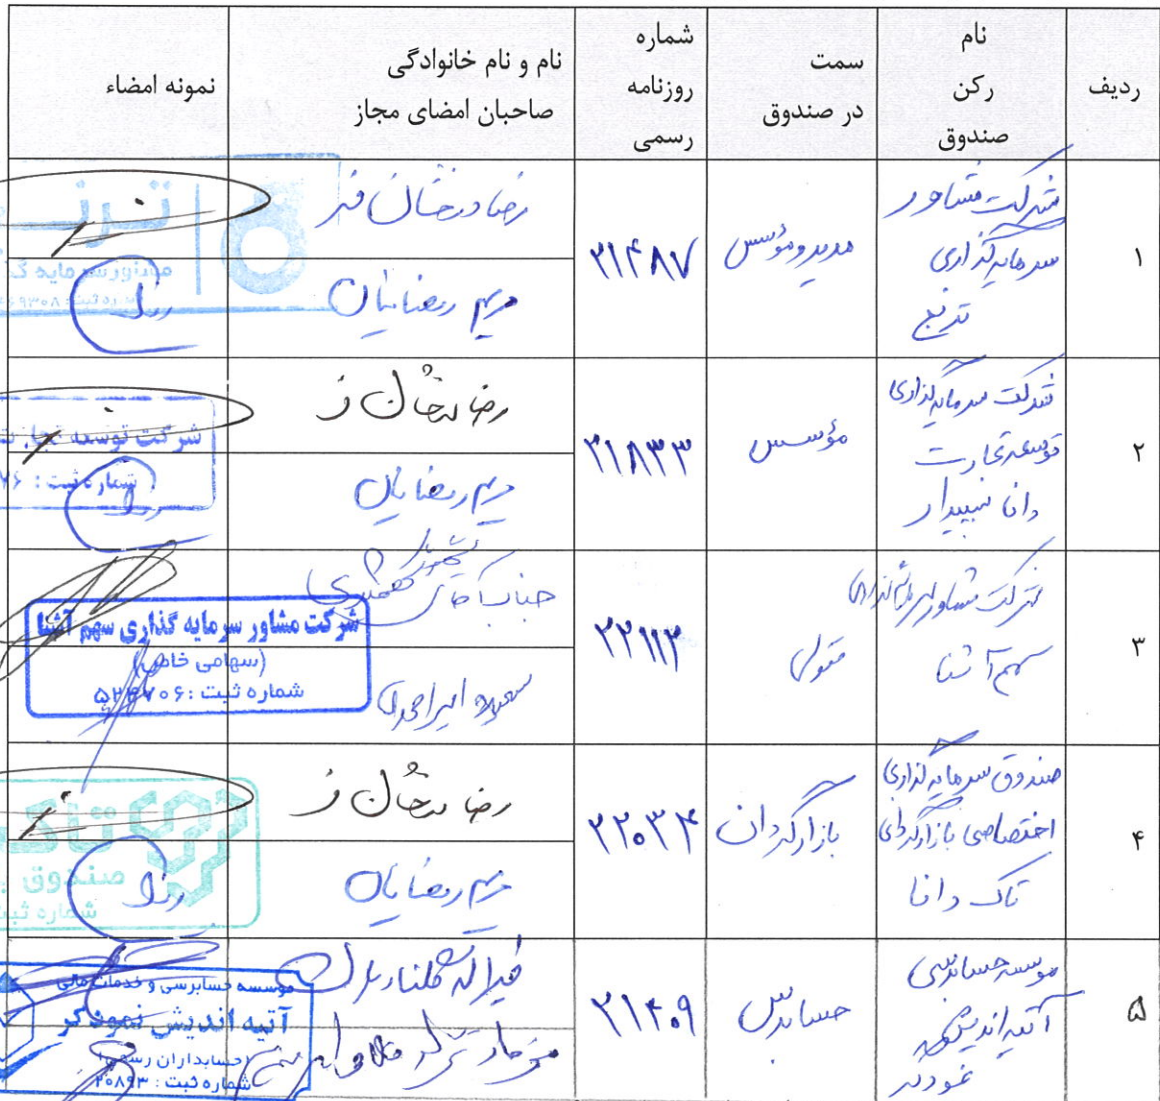 ردیف
نام
رکن
صندوق
سمت
در صندوق
شماره
روزنامه
رسمی
نام و نام خانوادگی
صاحبان امضای مجاز
نمونه امضاء
۱
شرکت مشاور
سرمایه‌گذاری
ترنج
مدیر و مؤسس
۲۱۴۸۷
رضا درخشان فر
مریم رمضانیان
مشاور سرمایه گ
۲
شرکت سرمایه‌گذاری
توسعه تجارت
دانا سپیدار
مؤسس
۲۱۸۳۳
رضا درخشان فر
مریم رمضانیان
شرکت توسعه تجارت
شماره ثبت :
۳
شرکت مشاور سرمایه‌گذاری
سهم آشنا
متولی
۲۲۱۱۳
جناب آقای
امیراحمدی
شرکت مشاور سرمایه گذاری سهم آشنا
(سهامی خاص)
شماره ثبت :
۴
صندوق سرمایه‌گذاری
اختصاصی بازارگردانی
تاک دانا
بازارگردان
۲۲۰۳۴
رضا درخشان فر
مریم رمضانیان
تاک
صندوق
شماره ثبت
۵
موسسه حسابرسی
آتیه اندیش
نمودگر
حسابرس
۲۱۴۰۹
موسسه حسابرسی و خدمات مالی
آتیه اندیش نمودگر
(حسابداران رسمی)
شماره ثبت : ۲۰۸۹۳